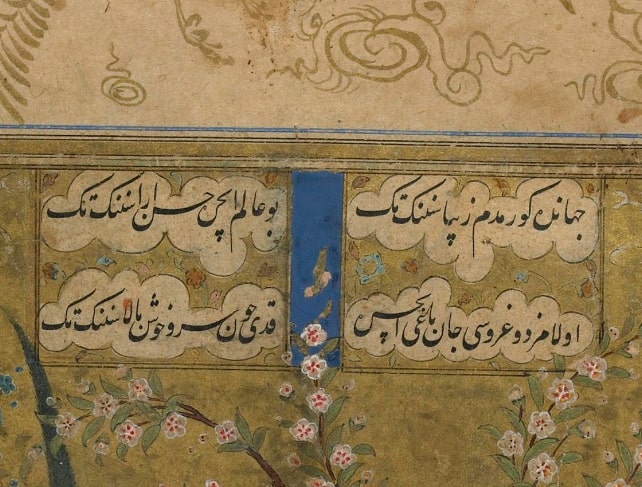 جهانده كورمدم زیبا سننك تك بو عالم ایچره حسن ارا سننك تك
اولامز دوغروسی جان باغی ایچره قدی چون سرو خوش بالا سننك تك